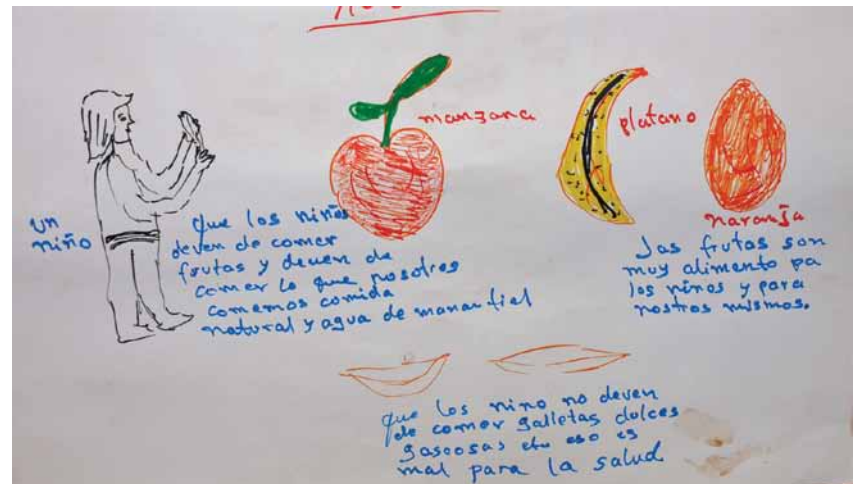 manzana
platano
naranja
un
niño
que los niños
deven de comer
frutas y deven de
comer lo que nosotros
comemos comida
natural y agua de manantiel
Las frutas son
muy alimento pa
los niños y para
nostros mismos.
que los nino no deven
de comer galletas dulces
gaseosas etc eso es
mal para la salud